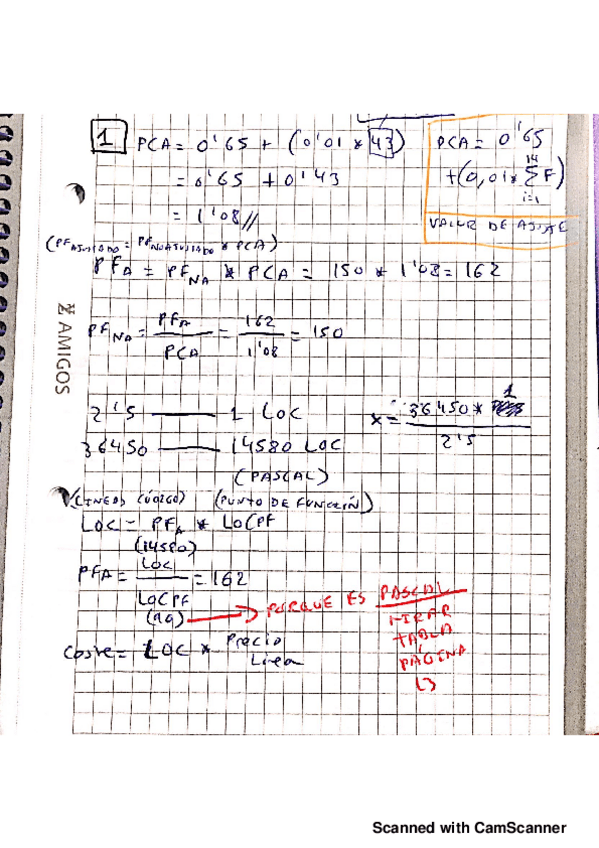 1 PCA = 0'65 + (0'01 * 43)
= 0'65 + 0'43
= 1'08 //
PCA = 0'65
+ (0,01 * 14 Σ i=1 F)
VALOR DE AJUSTE
(PF AJUSTADO = PF NO AJUSTADO * PCA)
PF A = PF NA * PCA = 150 * 1'08 = 162
PF NA = PFA / PCA = 162 / 1'08 = 150
Z AMIGOS
2'5 —— 1 LOC
36450 —— 14580 LOC
x = 36450 * 1 / 2'5
(PASCAL)
(LINEAS CÓDIGO) (PUNTO DE FUNCIÓN)
LOC = PFA * LOCPF
(14580)
PFA = LOC / LOCPF = 162
(90) → PORQUE ES PASCAL
MIRAR
TABLA
PÁGINA
13
Coste = LOC * Precio Linea
Scanned with CamScanner